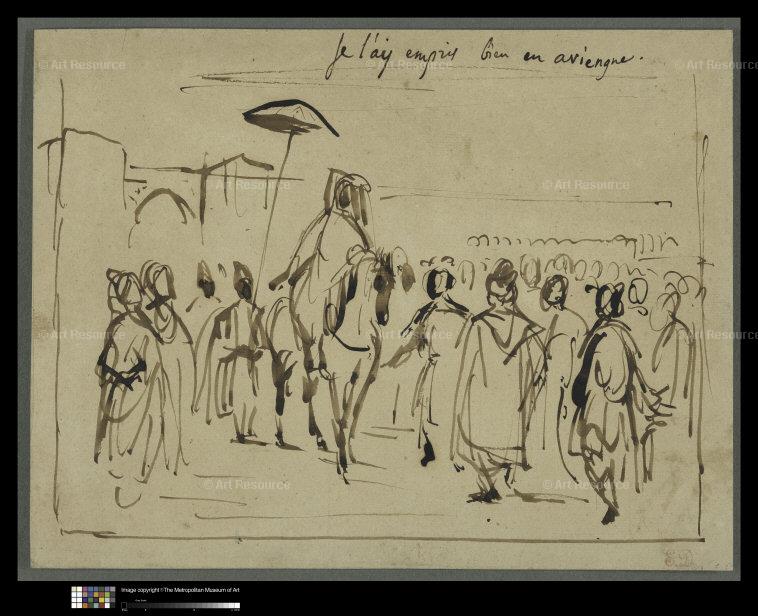 Je l'ay empris bien en aviengne.
© Art Resource
© Art Resource
© Art Resource
© Art Resource
© Art Resource
© Art Resource
© Art Resource
© Art Resource
© Art Resource
© Art Resource
© Art Resource
© Art Resource
E.D
Image copyright ©The Metropolitan Museum of Art